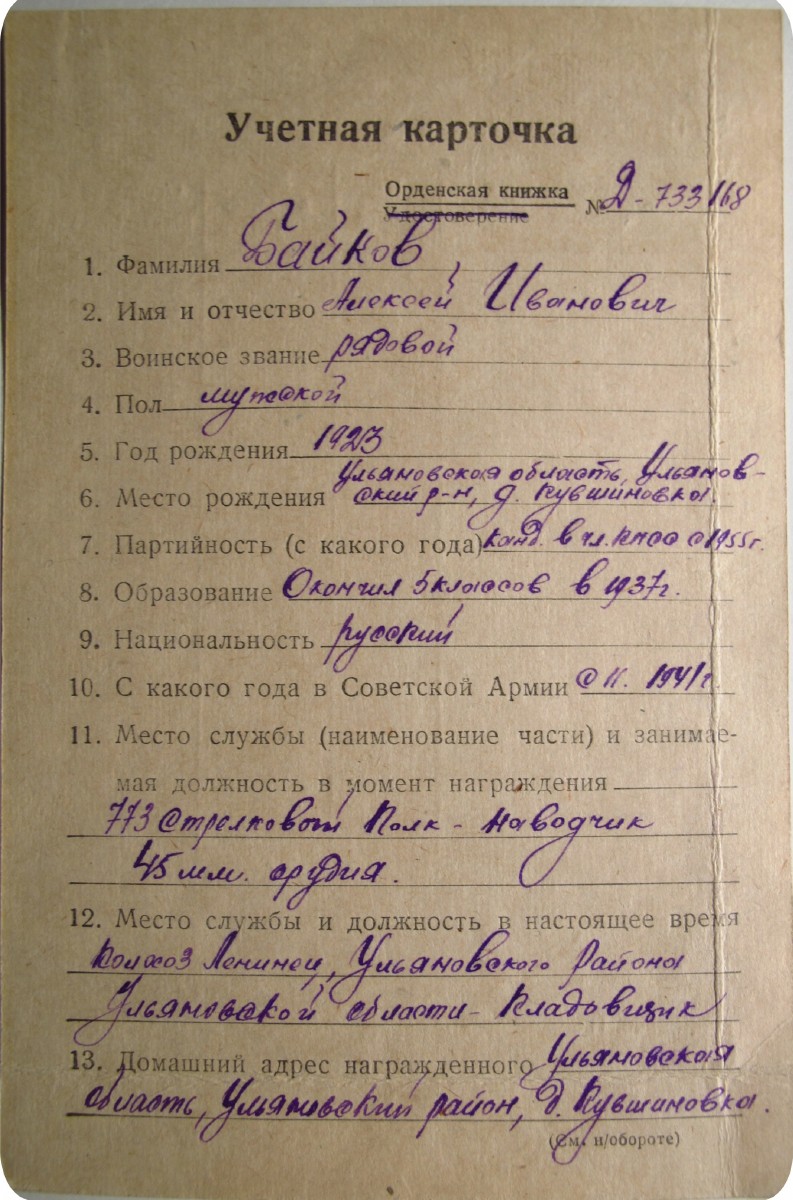 Учетная карточка
Орденская книжка
Удостоверение № Д-733168
1. Фамилия Байков
2. Имя и отчество Алексей Иванович
3. Воинское звание рядовой
4. Пол мужской
5. Год рождения 1923
Ульяновская область, Ульянов-
6. Место рождения ский р-н, д. Кувшиновка.
7. Партийность (с какого года) канд. в чл. КПСС с 1955г.
8. Образование Окончил 5 классов в 1937г.
9. Национальность русский
10. С какого года в Советской Армии с 11. 1941г.
11. Место службы (наименование части) и занимае-
мая должность в момент награждения
773 Стрелковый Полк - наводчик
45 мм. орудия.
12. Место службы и должность в настоящее время
Колхоз Ленинец, Ульяновского района
Ульяновской области - Кладовщик
13. Домашний адрес награжденного Ульяновская
область, Ульяновский район, д. Кувшиновка.
(См. н/обороте)